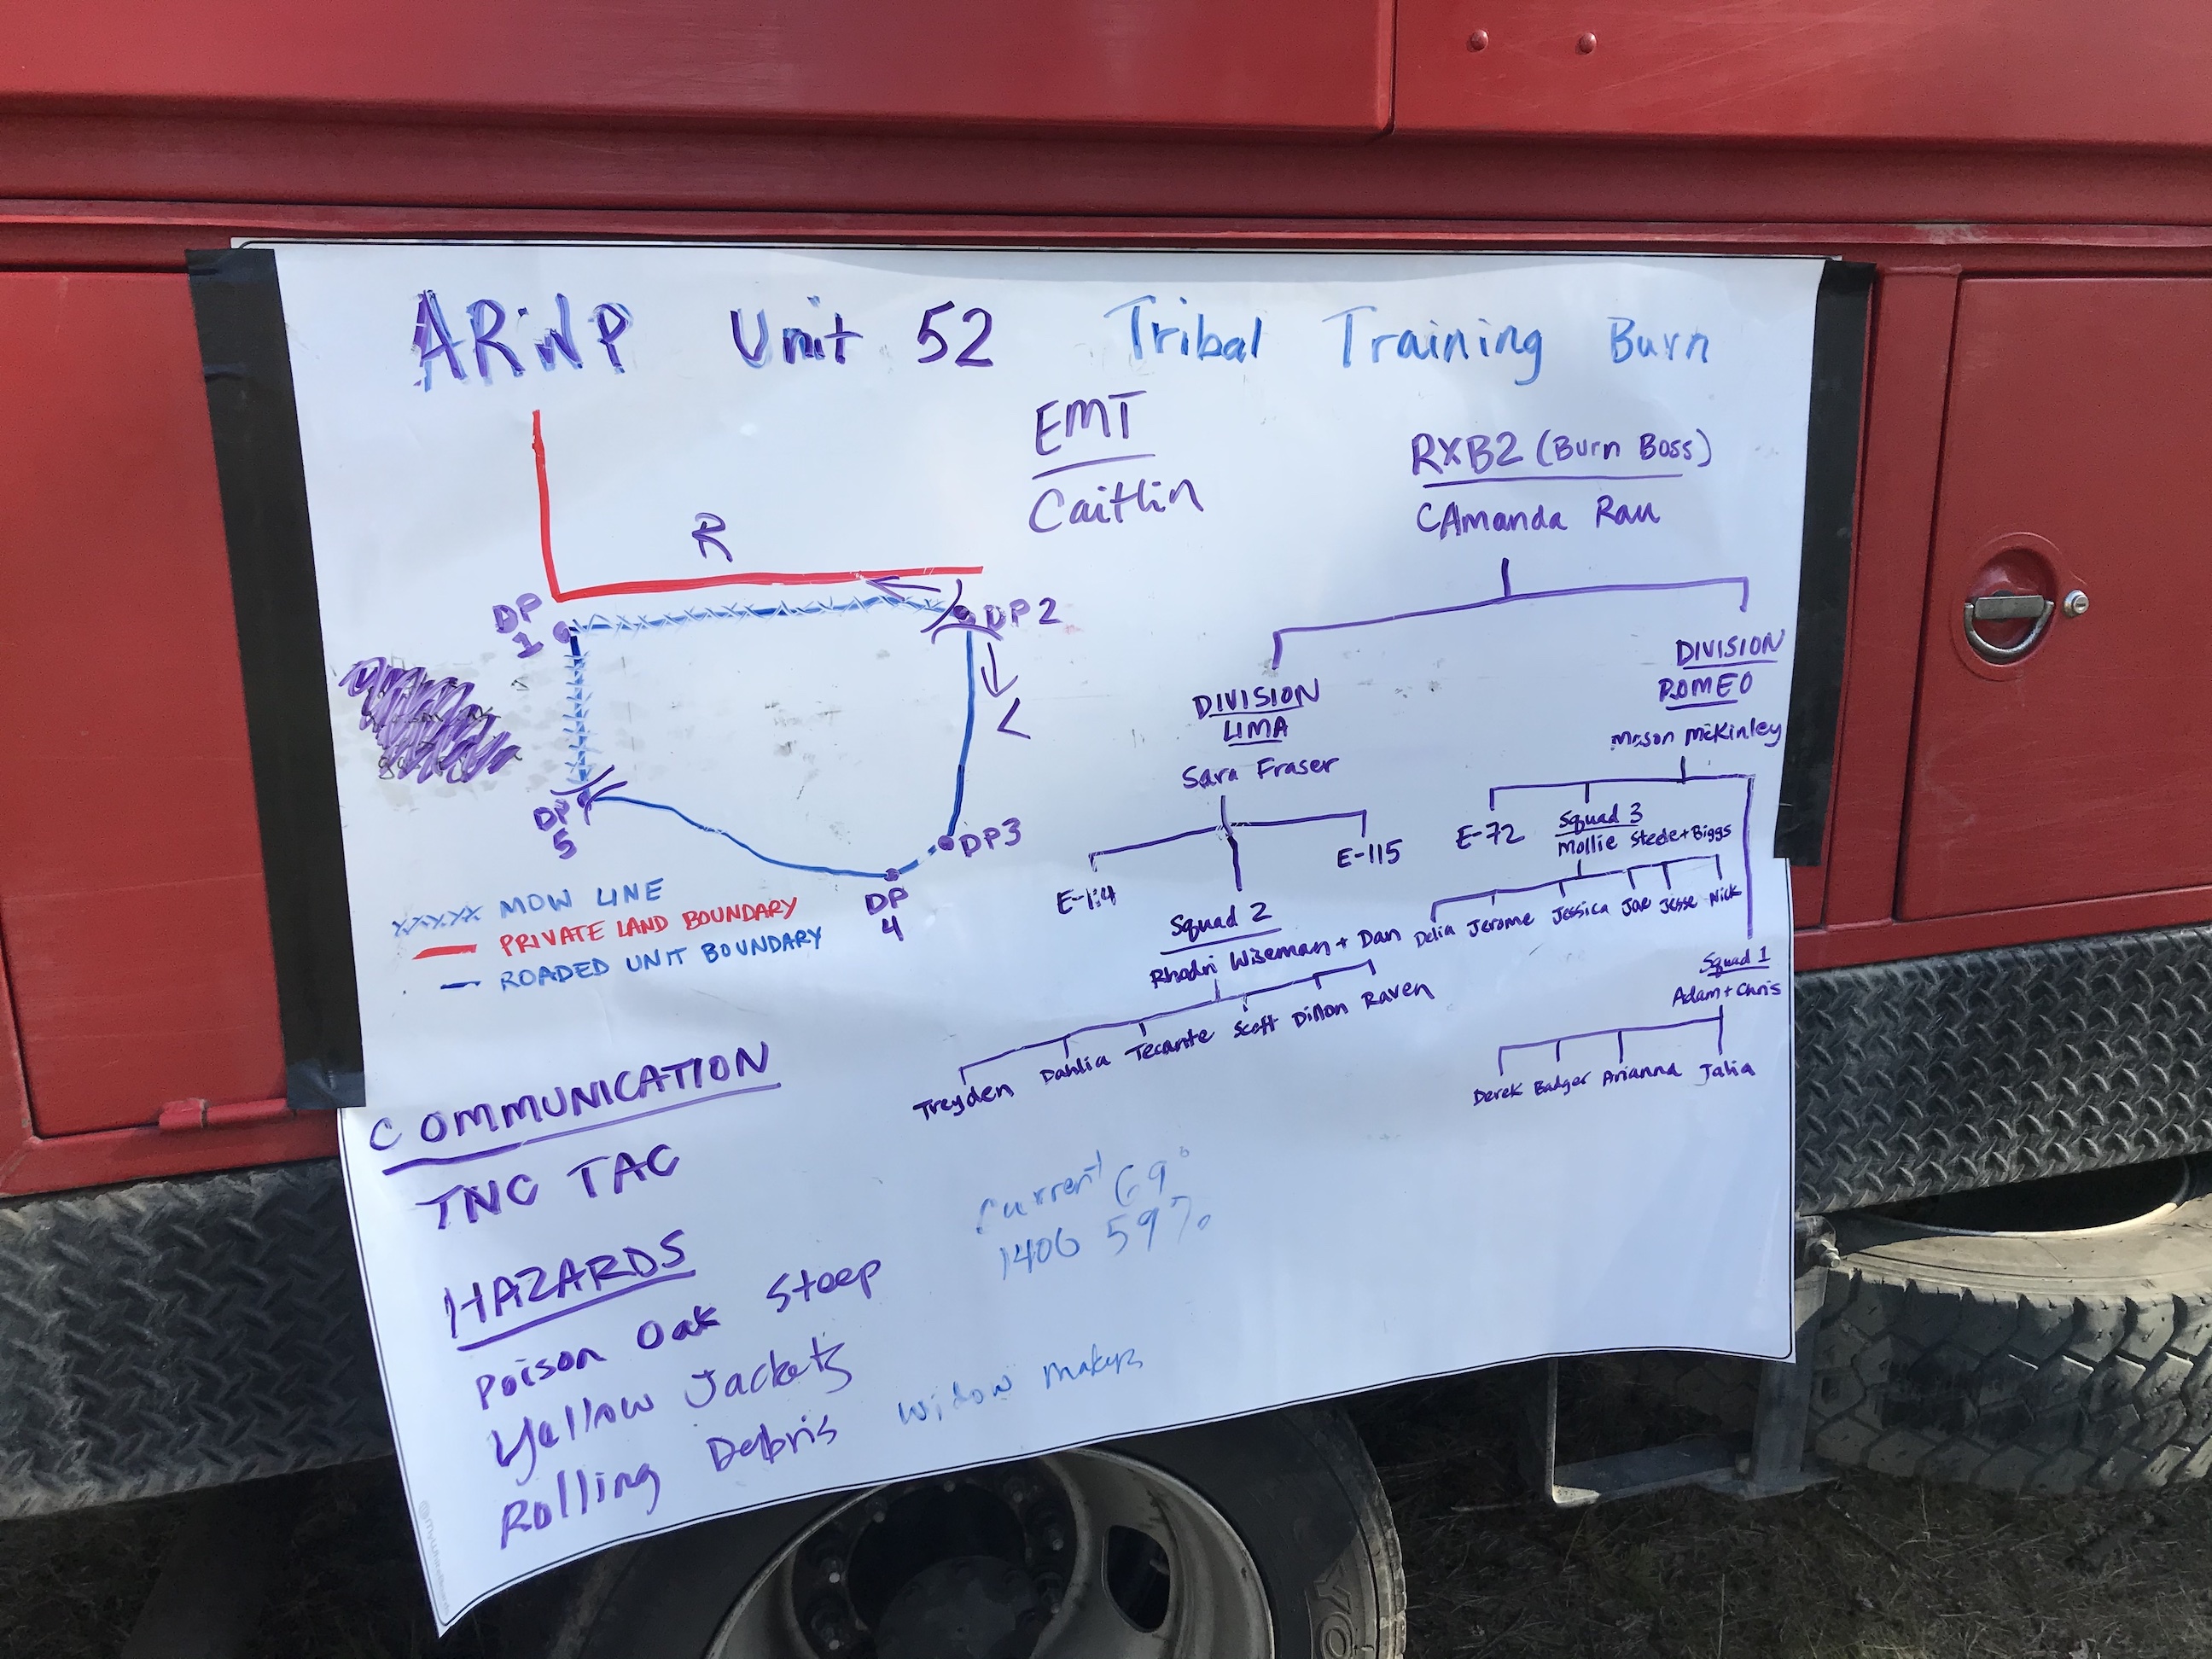 ARWP Unit 52 Tribal Training Burn
EMT
Caitlin
RXB2 (Burn Boss)
CAmanda Rau
R
DP
1
DP2
<
DP
5
DP3
DP
4
XXXXX MOW LINE
PRIVATE LAND BOUNDARY
ROADED UNIT BOUNDARY
DIVISION
LIMA
Sara Fraser
E-115
Squad 2
Rhodri Wiseman + Dan
Treyden Dahlia Tecante Scott Dillon Raven
DIVISION
ROMEO
Mason McKinley
E-72
Squad 3
Mollie Steele+Biggs
Delia Jerome Jessica Joe Jesse Nick
Squad 1
Adam + Chris
Derek Badger Arianna Jalia
COMMUNICATION
TNC TAC
Current 69°
1406 59%
HAZARDS
Poison Oak Steep
Yellow Jackets
Rolling Debris Widow Makers